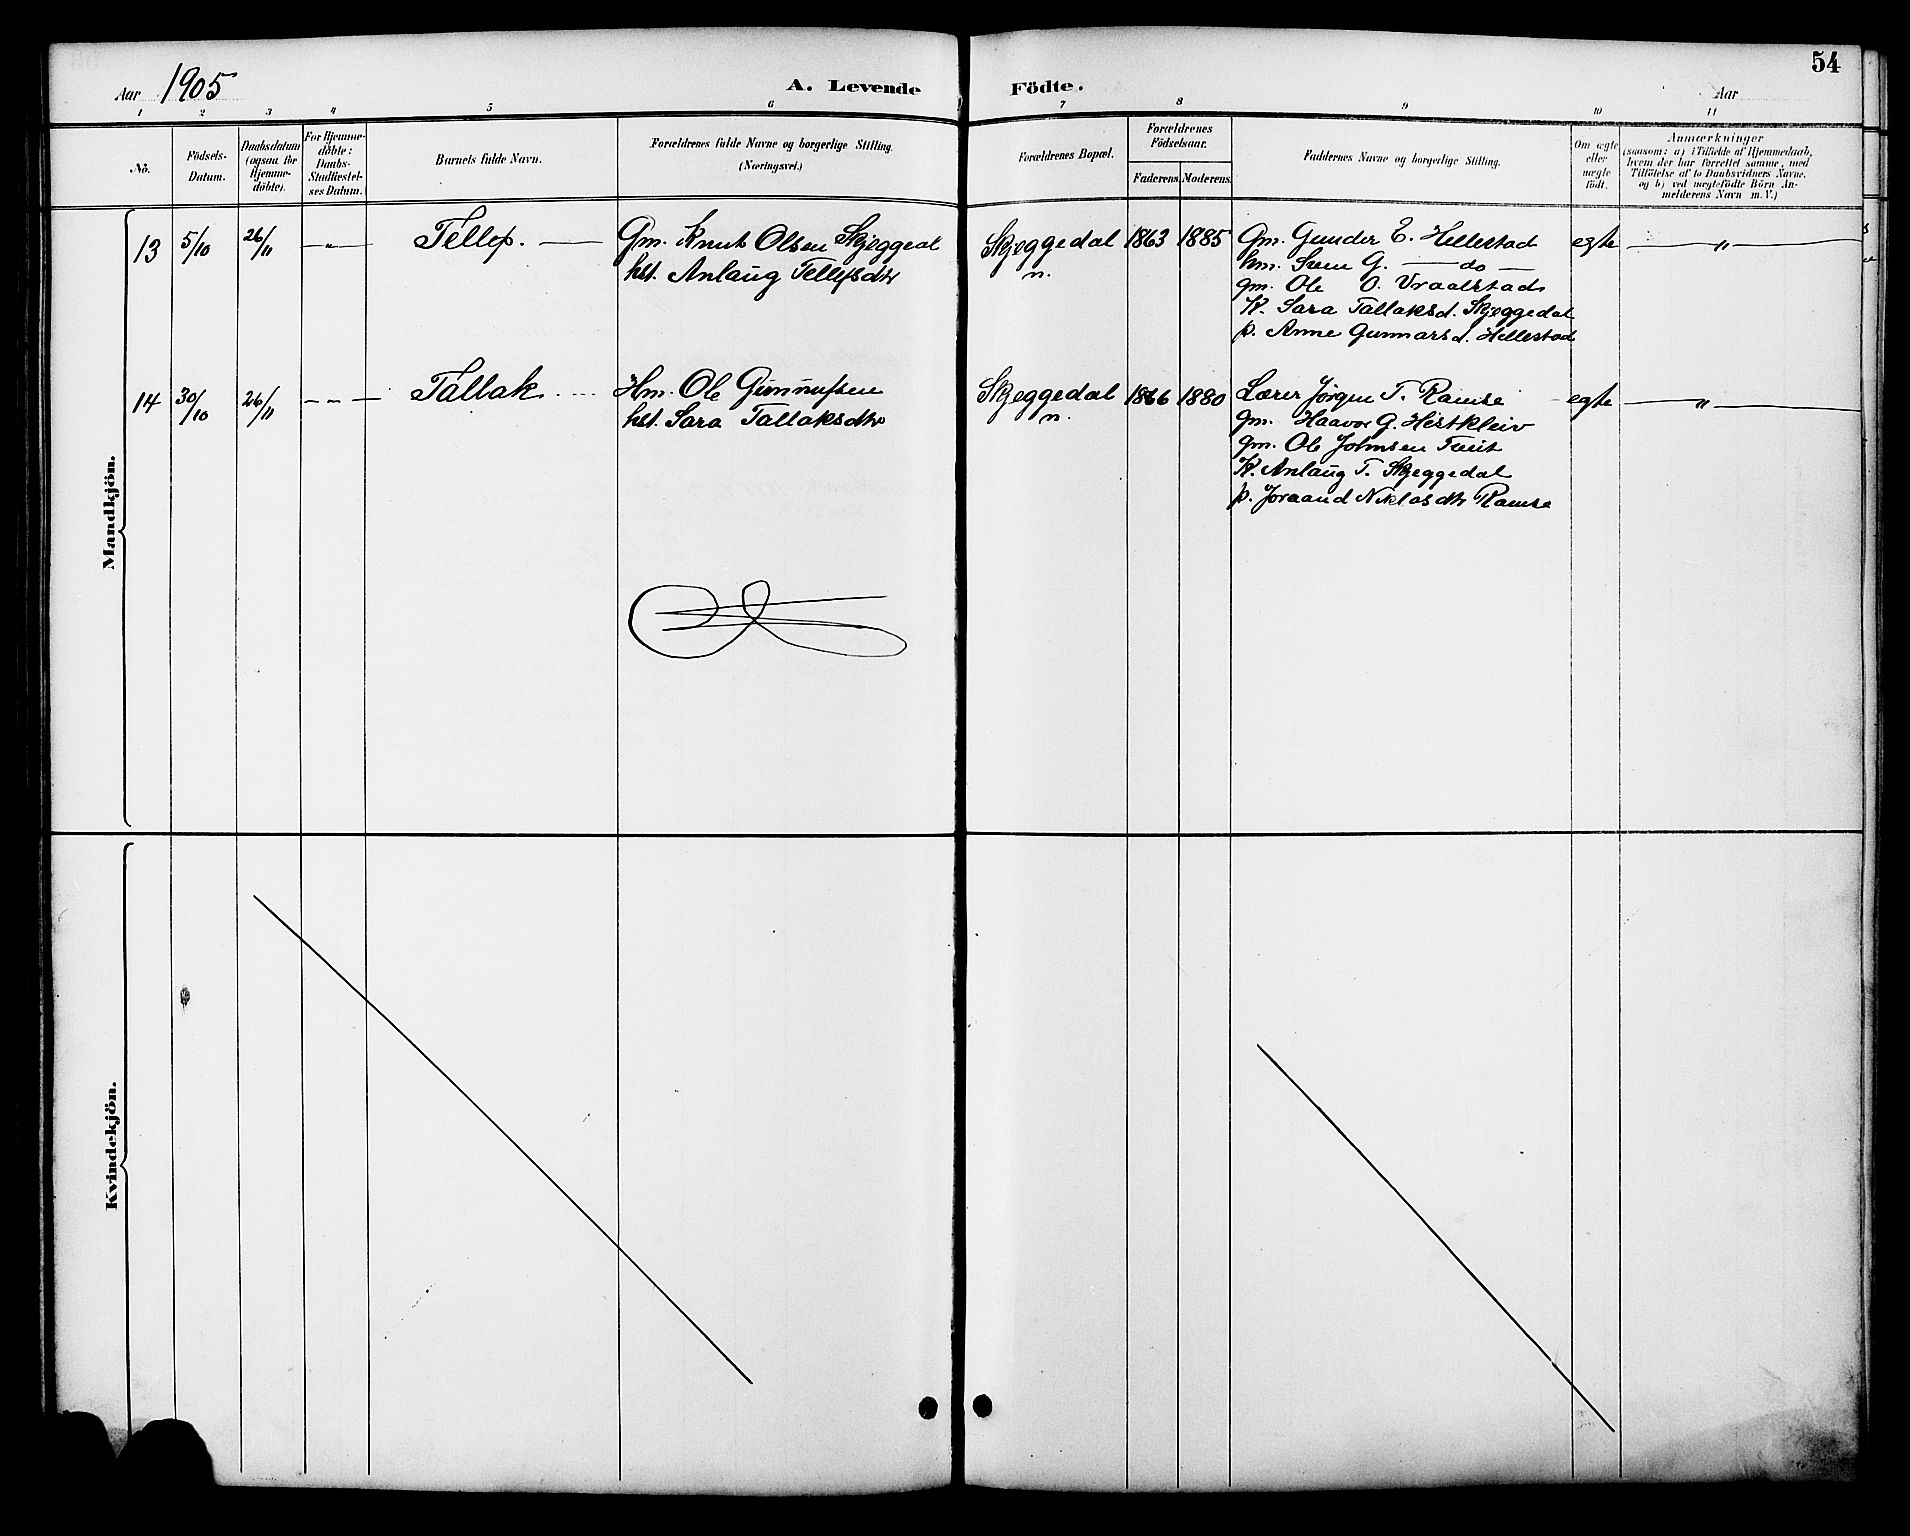 54
Aar 1905
A. Levende Födte.
Aar
1 2 3 4 5 6 7 8 9 10 11
No.
Födsels-
Datum.
Daabsdatum
(ogsaa for
Hjemme-
döbte).
For Hjemme-
döbte:
Daabs-
Stadfæstel-
ses Datum.
Barnets fulde Navn.
Forældrenes fulde Navne og borgerlige Stilling.
(Næringsvei.)
Forældrenes Bopæl.
Forældrenes
Födselsaar.
Faderens. Moderens.
Faddernes Navne og borgerlige Stilling.
Om ægte
eller
uægte
födt.
Anmærkninger
(saasom: a) i Tilfælde af Hjemmedaab,
hvem der har forrettet samme, med
Tilföielse af to Daabsvidners Navne.
og b) ved uægtefödte Börn An-
melderens Navn m. V.)
Mandkjön.
13 5/10 26/11 — " — Tellef. — Gm. Knut Olsen Skjeggedal Skjeggedal 1863 1885 Gm. Gunder E. Hellestad egte — " —
hst. Anlaug Tellefsdtr n. hm. Sven G. — do —
gm. Ole O. Vraalstad
K. Sara Tallaksd. Skjeggedal
p. Anne Gunnarsd. Hellestad
14 30/10 26/11 — " — Tallak .... Hm. Ole Gunnufsen Skjeggedal 1866 1880 Lærer Jørgen T. Ramse egte — " —
hst. Sara Tallaksdtr n. gm. Haavor G. Hestkleiv
gm. Ole Johnsen Tveit
K. Anlaug T. Skjeggedal
p. Joraand Niklasdtr Ramse
Kvindekjön.